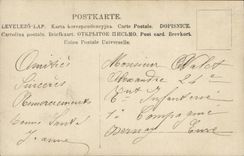 POSTKARTE.
LEVELEZŐ-LAP. Karta korespondencyjna. Carte Postale. DOPISNICE.
Cartolina postale. Briefkaart. ОТКРЫТОЕ ПИСЬМО. Post card. Brevkort.
Union Postale Universelle.
Amitiés
Sincères
Remerciements
Bonne Santé
Jeanne
Monsieur
Alexandre
28e
Infanterie
Compagnie
Bernay Eure